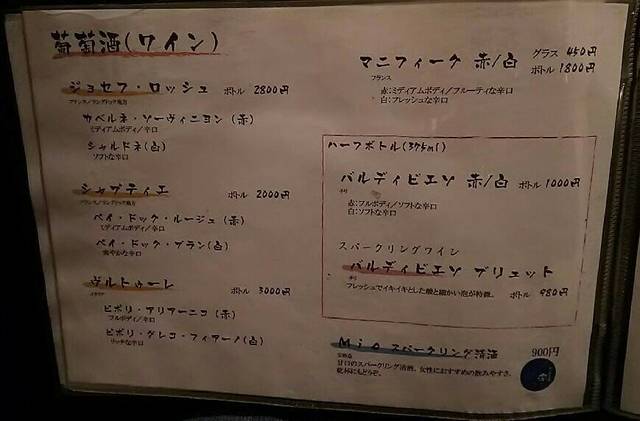 葡萄酒(ワイン)
ジョセフ・ロッシュ ボトル 2800円
フランス/ラングドック地方
カベルネ・ソーヴィニヨン(赤)
ミディアムボディ/辛口
シャルドネ(白)
ソフトな辛口
シャプティエ ボトル 2000円
フランス/ラングドック地方
ペイ・ドック・ルージュ(赤)
ミディアムボディ/辛口
ペイ・ドック・ブラン(白)
爽やかな辛口
ヴルトゥーレ ボトル 3000円
イタリア
ピポリ・アリアーニコ(赤)
フルボディ/辛口
ピポリ・グレコ・フィアーノ(白)
リッチな辛口
マニフィーク 赤/白 グラス 450円
フランス ボトル 1800円
赤:ミディアムボディ/フルーティな辛口
白:フレッシュな辛口
ハーフボトル(375ml)
バルディビエソ 赤/白 ボトル 1000円
チリ
赤:フルボディ/ソフトな辛口
白:ソフトな辛口
スパークリングワイン
バルディビエソ ブリュット
チリ
フレッシュでイキイキとした酸と細かい泡が特徴。 ボトル 980円
Mio スパークリング清酒 900円
宝酒造
甘口のスパークリング清酒。女性におすすめの飲みやすさ。
乾杯にもどうぞ。